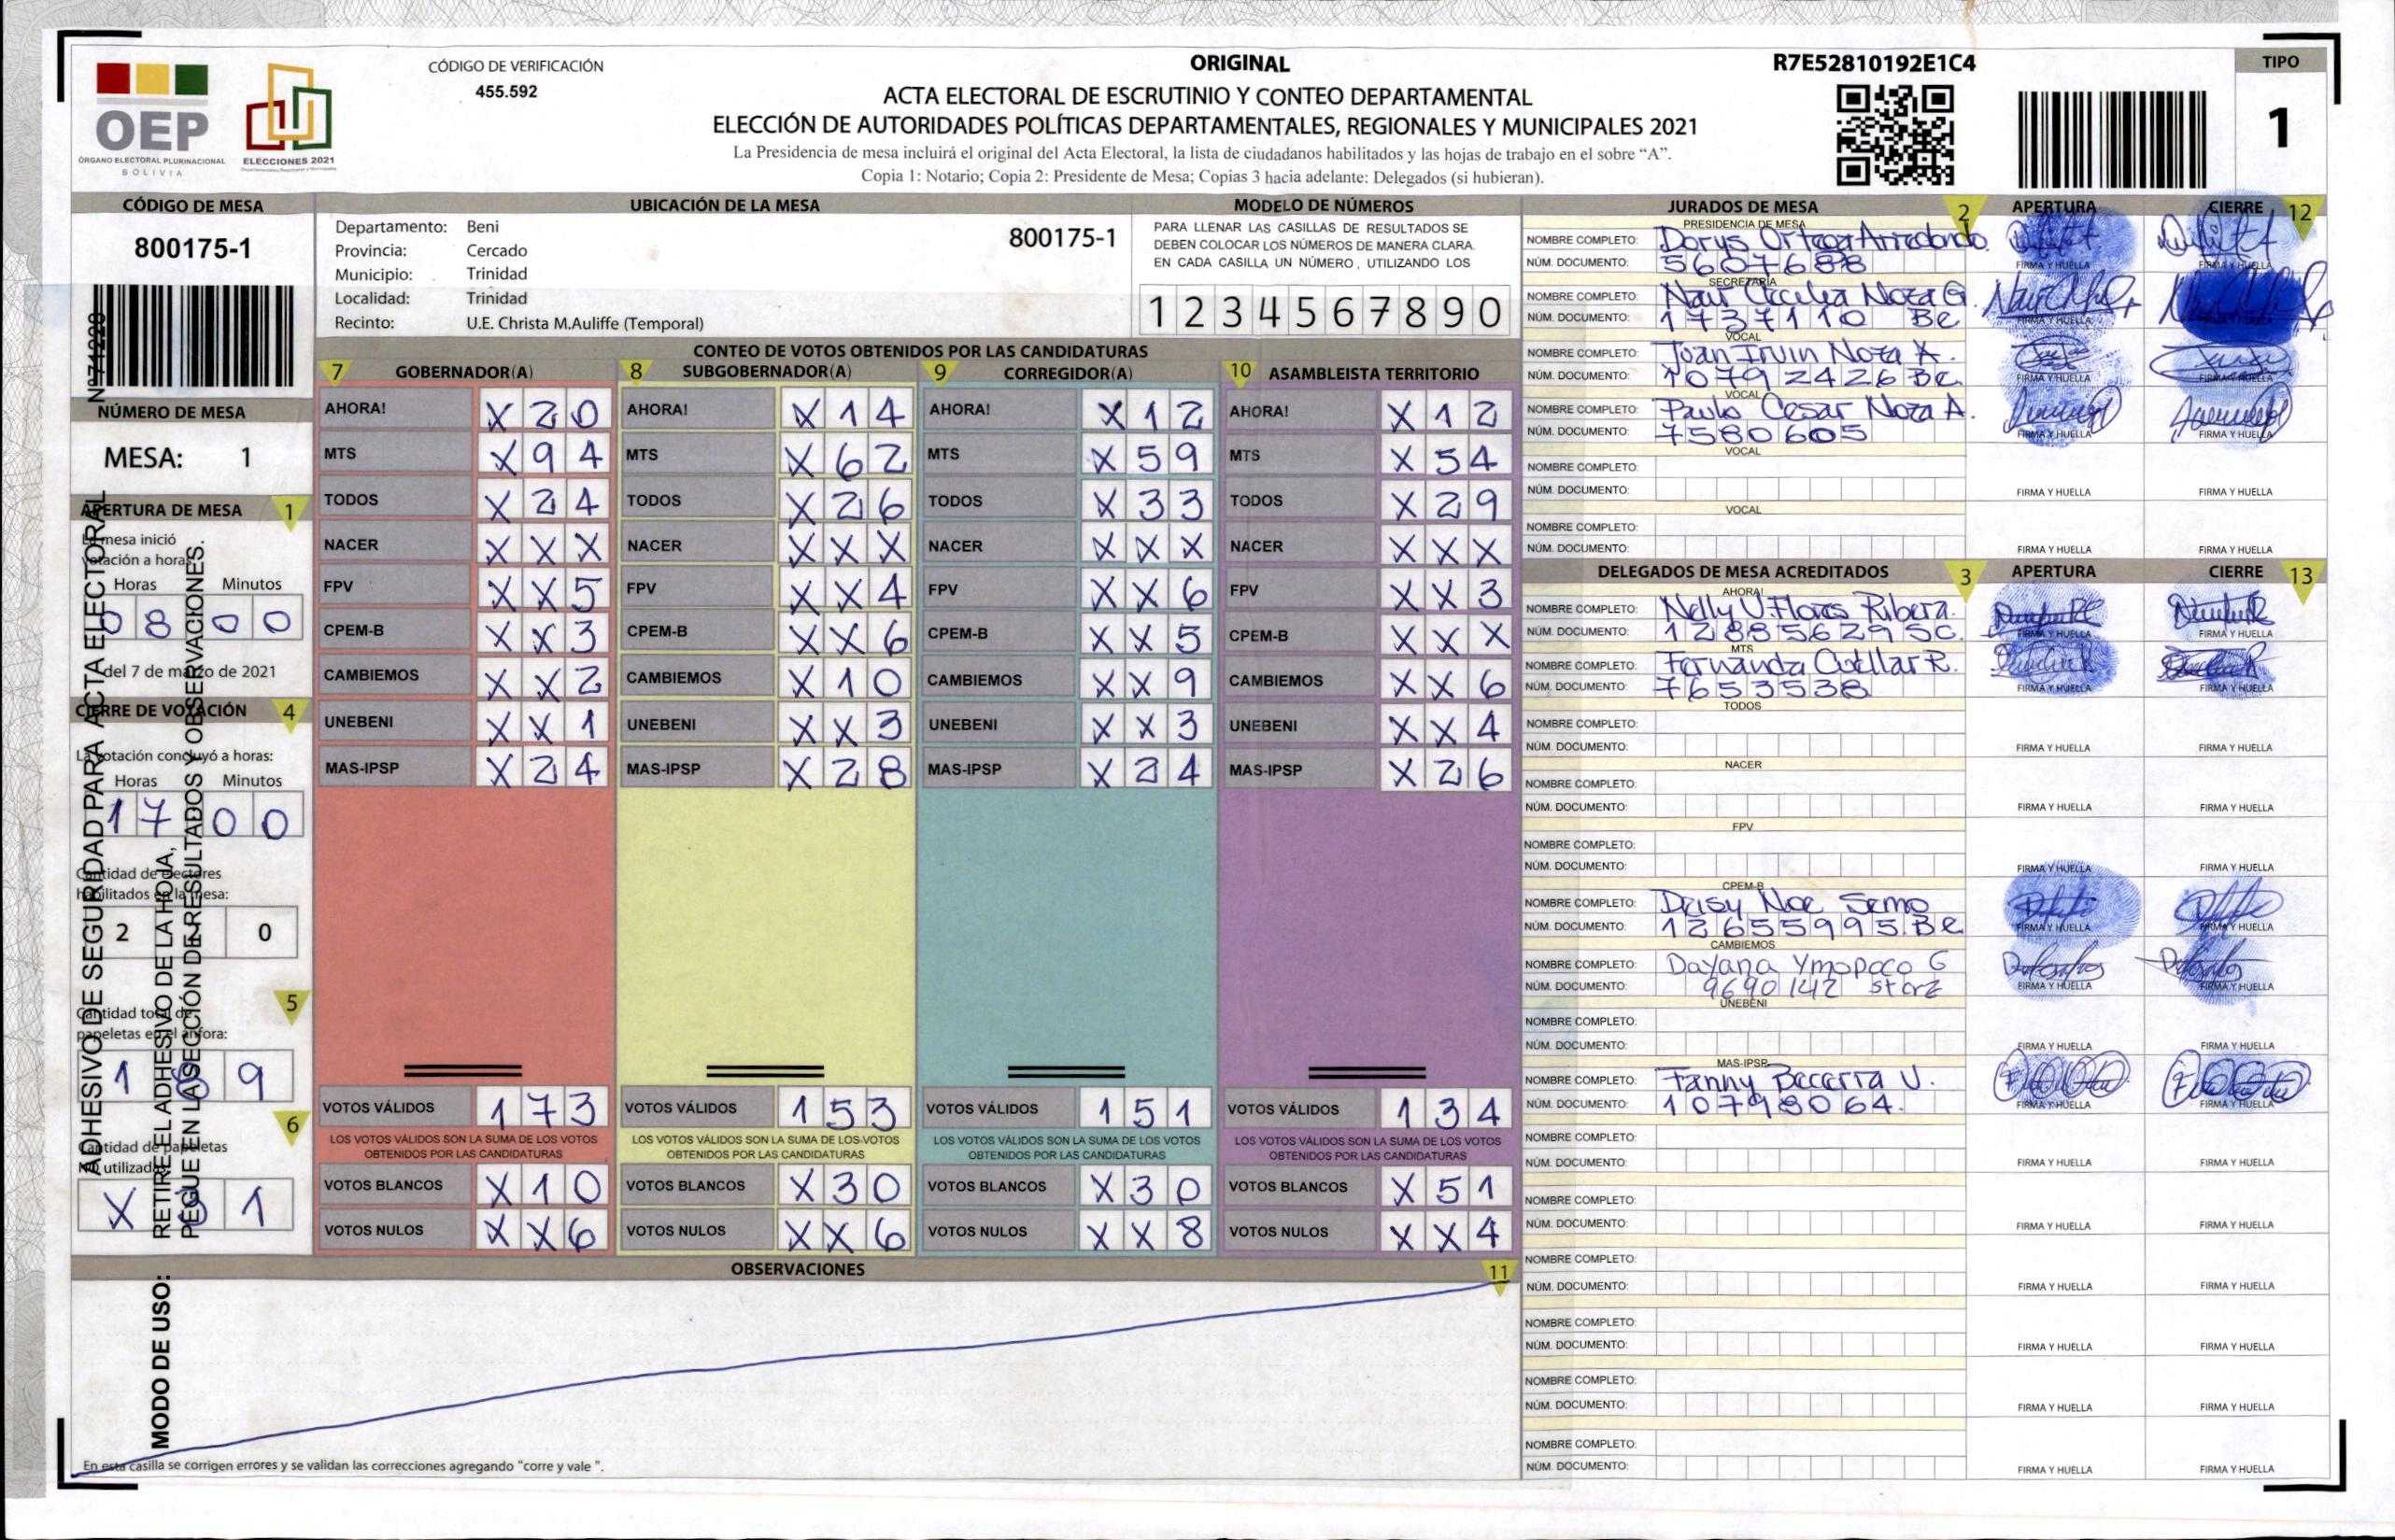 ORIGINAL
R7E52810192E1C4
TIPO
1
OEP
ÓRGANO ELECTORAL PLURINACIONAL
BOLIVIA
ELECCIONES 2021
CÓDIGO DE VERIFICACIÓN
455.592
ACTA ELECTORAL DE ESCRUTINIO Y CONTEO DEPARTAMENTAL
ELECCIÓN DE AUTORIDADES POLÍTICAS DEPARTAMENTALES, REGIONALES Y MUNICIPALES 2021
La Presidencia de mesa incluirá el original del Acta Electoral, la lista de ciudadanos habilitados y las hojas de trabajo en el sobre “A”.
Copia 1: Notario; Copia 2: Presidente de Mesa; Copias 3 hacia adelante: Delegados (si hubieran).
CÓDIGO DE MESA
800175-1
NÚMERO DE MESA
MESA: 1
APERTURA DE MESA 1
La mesa inició
votación a horas:
Horas Minutos
0 8 0 0
del 7 de marzo de 2021
CIERRE DE VOTACIÓN 4
La votación concluyó a horas:
Horas Minutos
1 7 0 0
Cantidad de electores
habilitados en la mesa:
2 0
5
Cantidad total de
papeletas en el ánfora:
1 8 9
6
Cantidad de papeletas
NO utilizadas:
X 1
ADHESIVO DE SEGURIDAD PARA ACTA ELECTORAL
MODO DE USO: RETIRE EL ADHESIVO DE LA HOJA,
PEGUE EN LA SECCIÓN DE RESULTADOS Y OBSERVACIONES.
UBICACIÓN DE LA MESA
Departamento: Beni
Provincia: Cercado
Municipio: Trinidad
Localidad: Trinidad
Recinto: U.E. Christa M.Auliffe (Temporal)
800175-1
MODELO DE NÚMEROS
PARA LLENAR LAS CASILLAS DE RESULTADOS SE
DEBEN COLOCAR LOS NÚMEROS DE MANERA CLARA.
EN CADA CASILLA UN NÚMERO, UTILIZANDO LOS
1 2 3 4 5 6 7 8 9 0
CONTEO DE VOTOS OBTENIDOS POR LAS CANDIDATURAS
7 GOBERNADOR(A) 8 SUBGOBERNADOR(A) 9 CORREGIDOR(A) 10 ASAMBLEISTA TERRITORIO
AHORA! X 2 0 AHORA! X 1 4 AHORA! X 1 2 AHORA! X 1 2
MTS X 9 4 MTS X 6 2 MTS X 5 9 MTS X 5 4
TODOS X 2 4 TODOS X 2 6 TODOS X 3 3 TODOS X 2 9
NACER X X X NACER X X X NACER X X X NACER X X X
FPV X X 5 FPV X X 4 FPV X X 6 FPV X X 3
CPEM-B X X 3 CPEM-B X X 6 CPEM-B X X 5 CPEM-B X X X
CAMBIEMOS X X 2 CAMBIEMOS X 1 0 CAMBIEMOS X X 9 CAMBIEMOS X X 6
UNEBENI X X 1 UNEBENI X X 3 UNEBENI X X 3 UNEBENI X X 4
MAS-IPSP X 2 4 MAS-IPSP X 2 8 MAS-IPSP X 2 4 MAS-IPSP X 2 6
VOTOS VÁLIDOS 1 7 3 VOTOS VÁLIDOS 1 5 3 VOTOS VÁLIDOS 1 5 1 VOTOS VÁLIDOS 1 3 4
LOS VOTOS VÁLIDOS SON LA SUMA DE LOS VOTOS LOS VOTOS VÁLIDOS SON LA SUMA DE LOS VOTOS LOS VOTOS VÁLIDOS SON LA SUMA DE LOS VOTOS LOS VOTOS VÁLIDOS SON LA SUMA DE LOS VOTOS
OBTENIDOS POR LAS CANDIDATURAS OBTENIDOS POR LAS CANDIDATURAS OBTENIDOS POR LAS CANDIDATURAS OBTENIDOS POR LAS CANDIDATURAS
VOTOS BLANCOS X 1 0 VOTOS BLANCOS X 3 0 VOTOS BLANCOS X 3 0 VOTOS BLANCOS X 5 1
VOTOS NULOS X X 6 VOTOS NULOS X X 6 VOTOS NULOS X X 8 VOTOS NULOS X X 4
OBSERVACIONES 11
En esta casilla se corrigen errores y se validan las correcciones agregando "corre y vale ".
JURADOS DE MESA 2 APERTURA CIERRE 12
PRESIDENCIA DE MESA
NOMBRE COMPLETO: Dorys Ortega Arredondo
NÚM. DOCUMENTO: 5607688 FIRMA Y HUELLA FIRMA Y HUELLA
SECRETARÍA
NOMBRE COMPLETO: Nair Cecilia Noza G.
NÚM. DOCUMENTO: 1737110 Be FIRMA Y HUELLA
VOCAL
NOMBRE COMPLETO: Juan Irvin Noza A.
NÚM. DOCUMENTO: 10792426 Be FIRMA Y HUELLA FIRMA Y HUELLA
VOCAL
NOMBRE COMPLETO: Paulo Cesar Noza A.
NÚM. DOCUMENTO: 7580605 FIRMA Y HUELLA FIRMA Y HUELLA
VOCAL
NOMBRE COMPLETO:
NÚM. DOCUMENTO: FIRMA Y HUELLA FIRMA Y HUELLA
VOCAL
NOMBRE COMPLETO:
NÚM. DOCUMENTO: FIRMA Y HUELLA FIRMA Y HUELLA
DELEGADOS DE MESA ACREDITADOS 3 APERTURA CIERRE 13
AHORA!
NOMBRE COMPLETO: Nelly V. Flores Ribera.
NÚM. DOCUMENTO: 12885629 SC. FIRMA Y HUELLA FIRMA Y HUELLA
MTS
NOMBRE COMPLETO: Fernanda Cuellar R.
NÚM. DOCUMENTO: 7653538 FIRMA Y HUELLA FIRMA Y HUELLA
TODOS
NOMBRE COMPLETO:
NÚM. DOCUMENTO: FIRMA Y HUELLA FIRMA Y HUELLA
NACER
NOMBRE COMPLETO:
NÚM. DOCUMENTO: FIRMA Y HUELLA FIRMA Y HUELLA
FPV
NOMBRE COMPLETO:
NÚM. DOCUMENTO: FIRMA Y HUELLA FIRMA Y HUELLA
CPEM-B
NOMBRE COMPLETO: Deisy Noe Semo
NÚM. DOCUMENTO: 12655995 Be FIRMA Y HUELLA FIRMA Y HUELLA
CAMBIEMOS
NOMBRE COMPLETO: Dayana Ymopoco G
NÚM. DOCUMENTO: 9690142 FIRMA Y HUELLA FIRMA Y HUELLA
UNEBENI
NOMBRE COMPLETO:
NÚM. DOCUMENTO: FIRMA Y HUELLA FIRMA Y HUELLA
MAS-IPSP
NOMBRE COMPLETO: Fanny Becerra V.
NÚM. DOCUMENTO: 10798064. FIRMA Y HUELLA FIRMA Y HUELLA
NOMBRE COMPLETO:
NÚM. DOCUMENTO: FIRMA Y HUELLA FIRMA Y HUELLA
NOMBRE COMPLETO:
NÚM. DOCUMENTO: FIRMA Y HUELLA FIRMA Y HUELLA
NOMBRE COMPLETO:
NÚM. DOCUMENTO: FIRMA Y HUELLA FIRMA Y HUELLA
NOMBRE COMPLETO:
NÚM. DOCUMENTO: FIRMA Y HUELLA FIRMA Y HUELLA
NOMBRE COMPLETO:
NÚM. DOCUMENTO: FIRMA Y HUELLA FIRMA Y HUELLA
NOMBRE COMPLETO:
NÚM. DOCUMENTO: FIRMA Y HUELLA FIRMA Y HUELLA